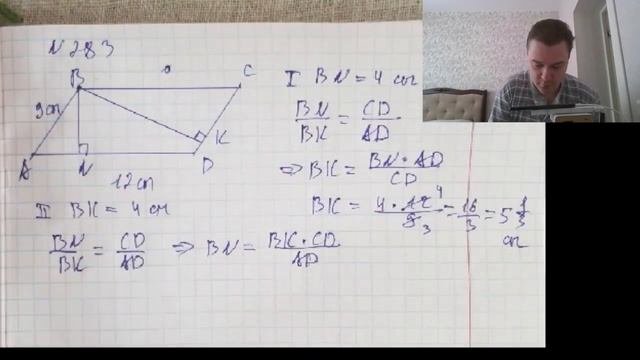 N 283
B
C
9 cm
A
N
D
K
12 cm
I BN = 4 см
BN/BK = CD/AD
⇒ BK = BN · AD/CD
BK = 4 · 12 4/9 3 = 16/3 = 5 1/3
см
II BK = 4 см
BN/BK = CD/AD ⇒ BN = BK · CD/AD